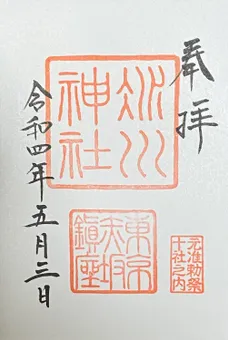 奉拝
氷川
神社
東京
赤坂
鎮座
元准勅祭
十社之内
令和四年五月三日